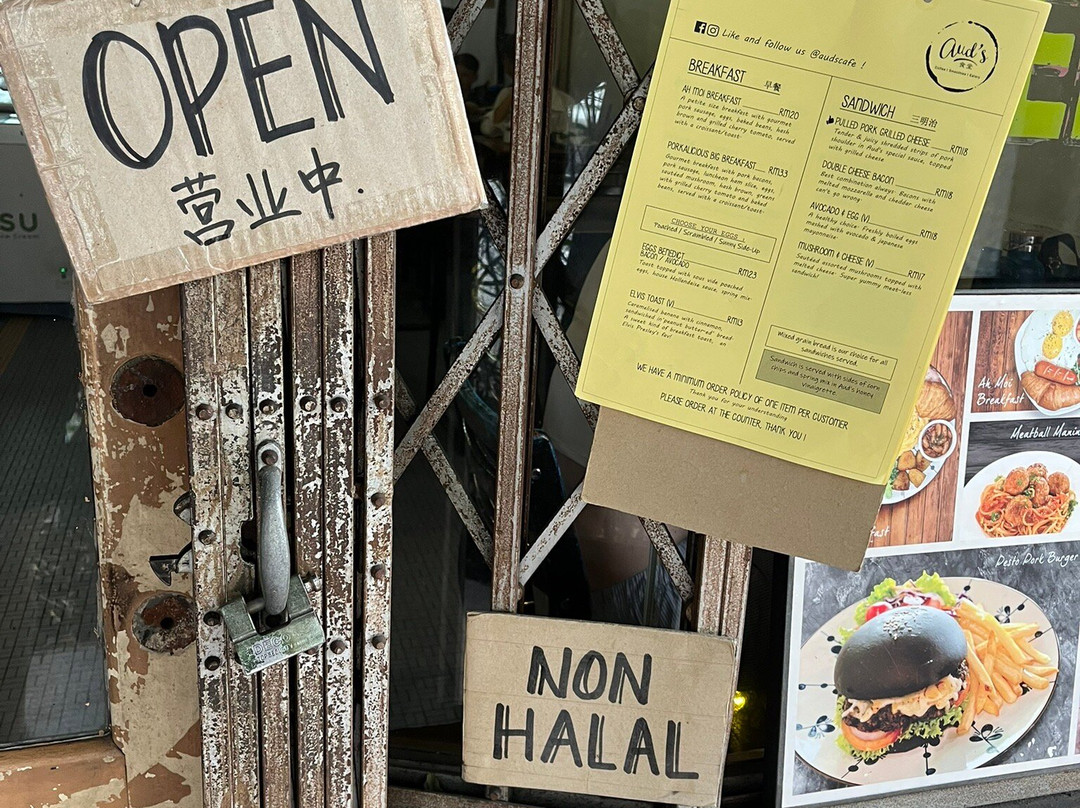 OPEN
营业中.
SU
Like and follow us @audscafe !
Aud's
食堂
BREAKFAST 早餐
AH MOI BREAKFAST RM20
A petite size breakfast with gourmet
pork sausage, eggs, baked beans, hash
brown and grilled cherry tomato, served
with a croissant/toast.
PORKALICIOUS BIG BREAKFAST RM33
Gourmet breakfast with pork bacons,
pork sausage, luncheon meat slice, eggs,
sautéed mushroom, hash brown, greens
with grilled cherry tomato and baked
beans, served with a croissant/toast.
CHOOSE YOUR EGGS :
Poached / Scrambled / Sunny Side-Up
EGGS BENEDICT
BACON / AVOCADO RM23
Toast topped with sous vide poached
eggs, house Hollandaise sauce, spring mix.
ELVIS TOAST (V) RM13
Caramelised banana with cinnamon,
sandwiched in peanut buttered bread.
A sweet kind of breakfast toast, an
Elvis Presley's fav!
SANDWICH 三明治
PULLED PORK GRILLED CHEESE RM18
Tender & juicy shredded strips of pork
shoulder in Aud's special sauce, topped
with grilled cheese
DOUBLE CHEESE BACON RM18
Best combination always. Bacons with
melted mozzarella and cheddar cheese
can't go wrong.
AVOCADO & EGG (V) RM18
A healthy choice. Freshly boiled eggs
mashed with avocado & japanese
mayonnaise
MUSHROOM & CHEESE (V) RM17
Sautéed assorted mushrooms topped with
melted cheese. Super yummy meat-less
sandwich!
Mixed grain bread is our choice for all
sandwiches served.
Sandwich is served with sides of corn
chips and spring mix in Aud's honey
vinaigrette
WE HAVE A MINIMUM ORDER POLICY OF ONE ITEM PER CUSTOMER
Thank you for your understanding
PLEASE ORDER AT THE COUNTER, THANK YOU !
Ah Moi
Breakfast
Meatball
Pesto Pork Burger
NON
HALAL